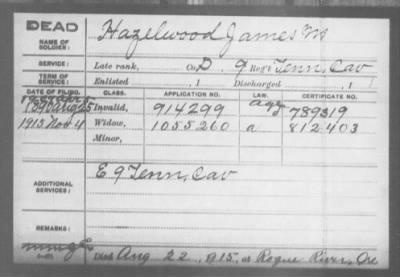 DEAD
NAME OF SOLDIER:
Hazelwood James M
SERVICE:
Late rank, Co. D, 9 Reg't Tenn, Cav
TERM OF SERVICE:
Enlisted , 1 Discharged , 1
DATE OF FILING. CLASS. APPLICATION NO. LAW. CERTIFICATE NO.
Invalid, 914299 789519
1915 Nov 4 Widow, 1055260 a 812403
Minor,
ADDITIONAL SERVICES:
E 9 Tenn, Cav
REMARKS:
Died Aug 22, 1915, at Rogue River, Ore